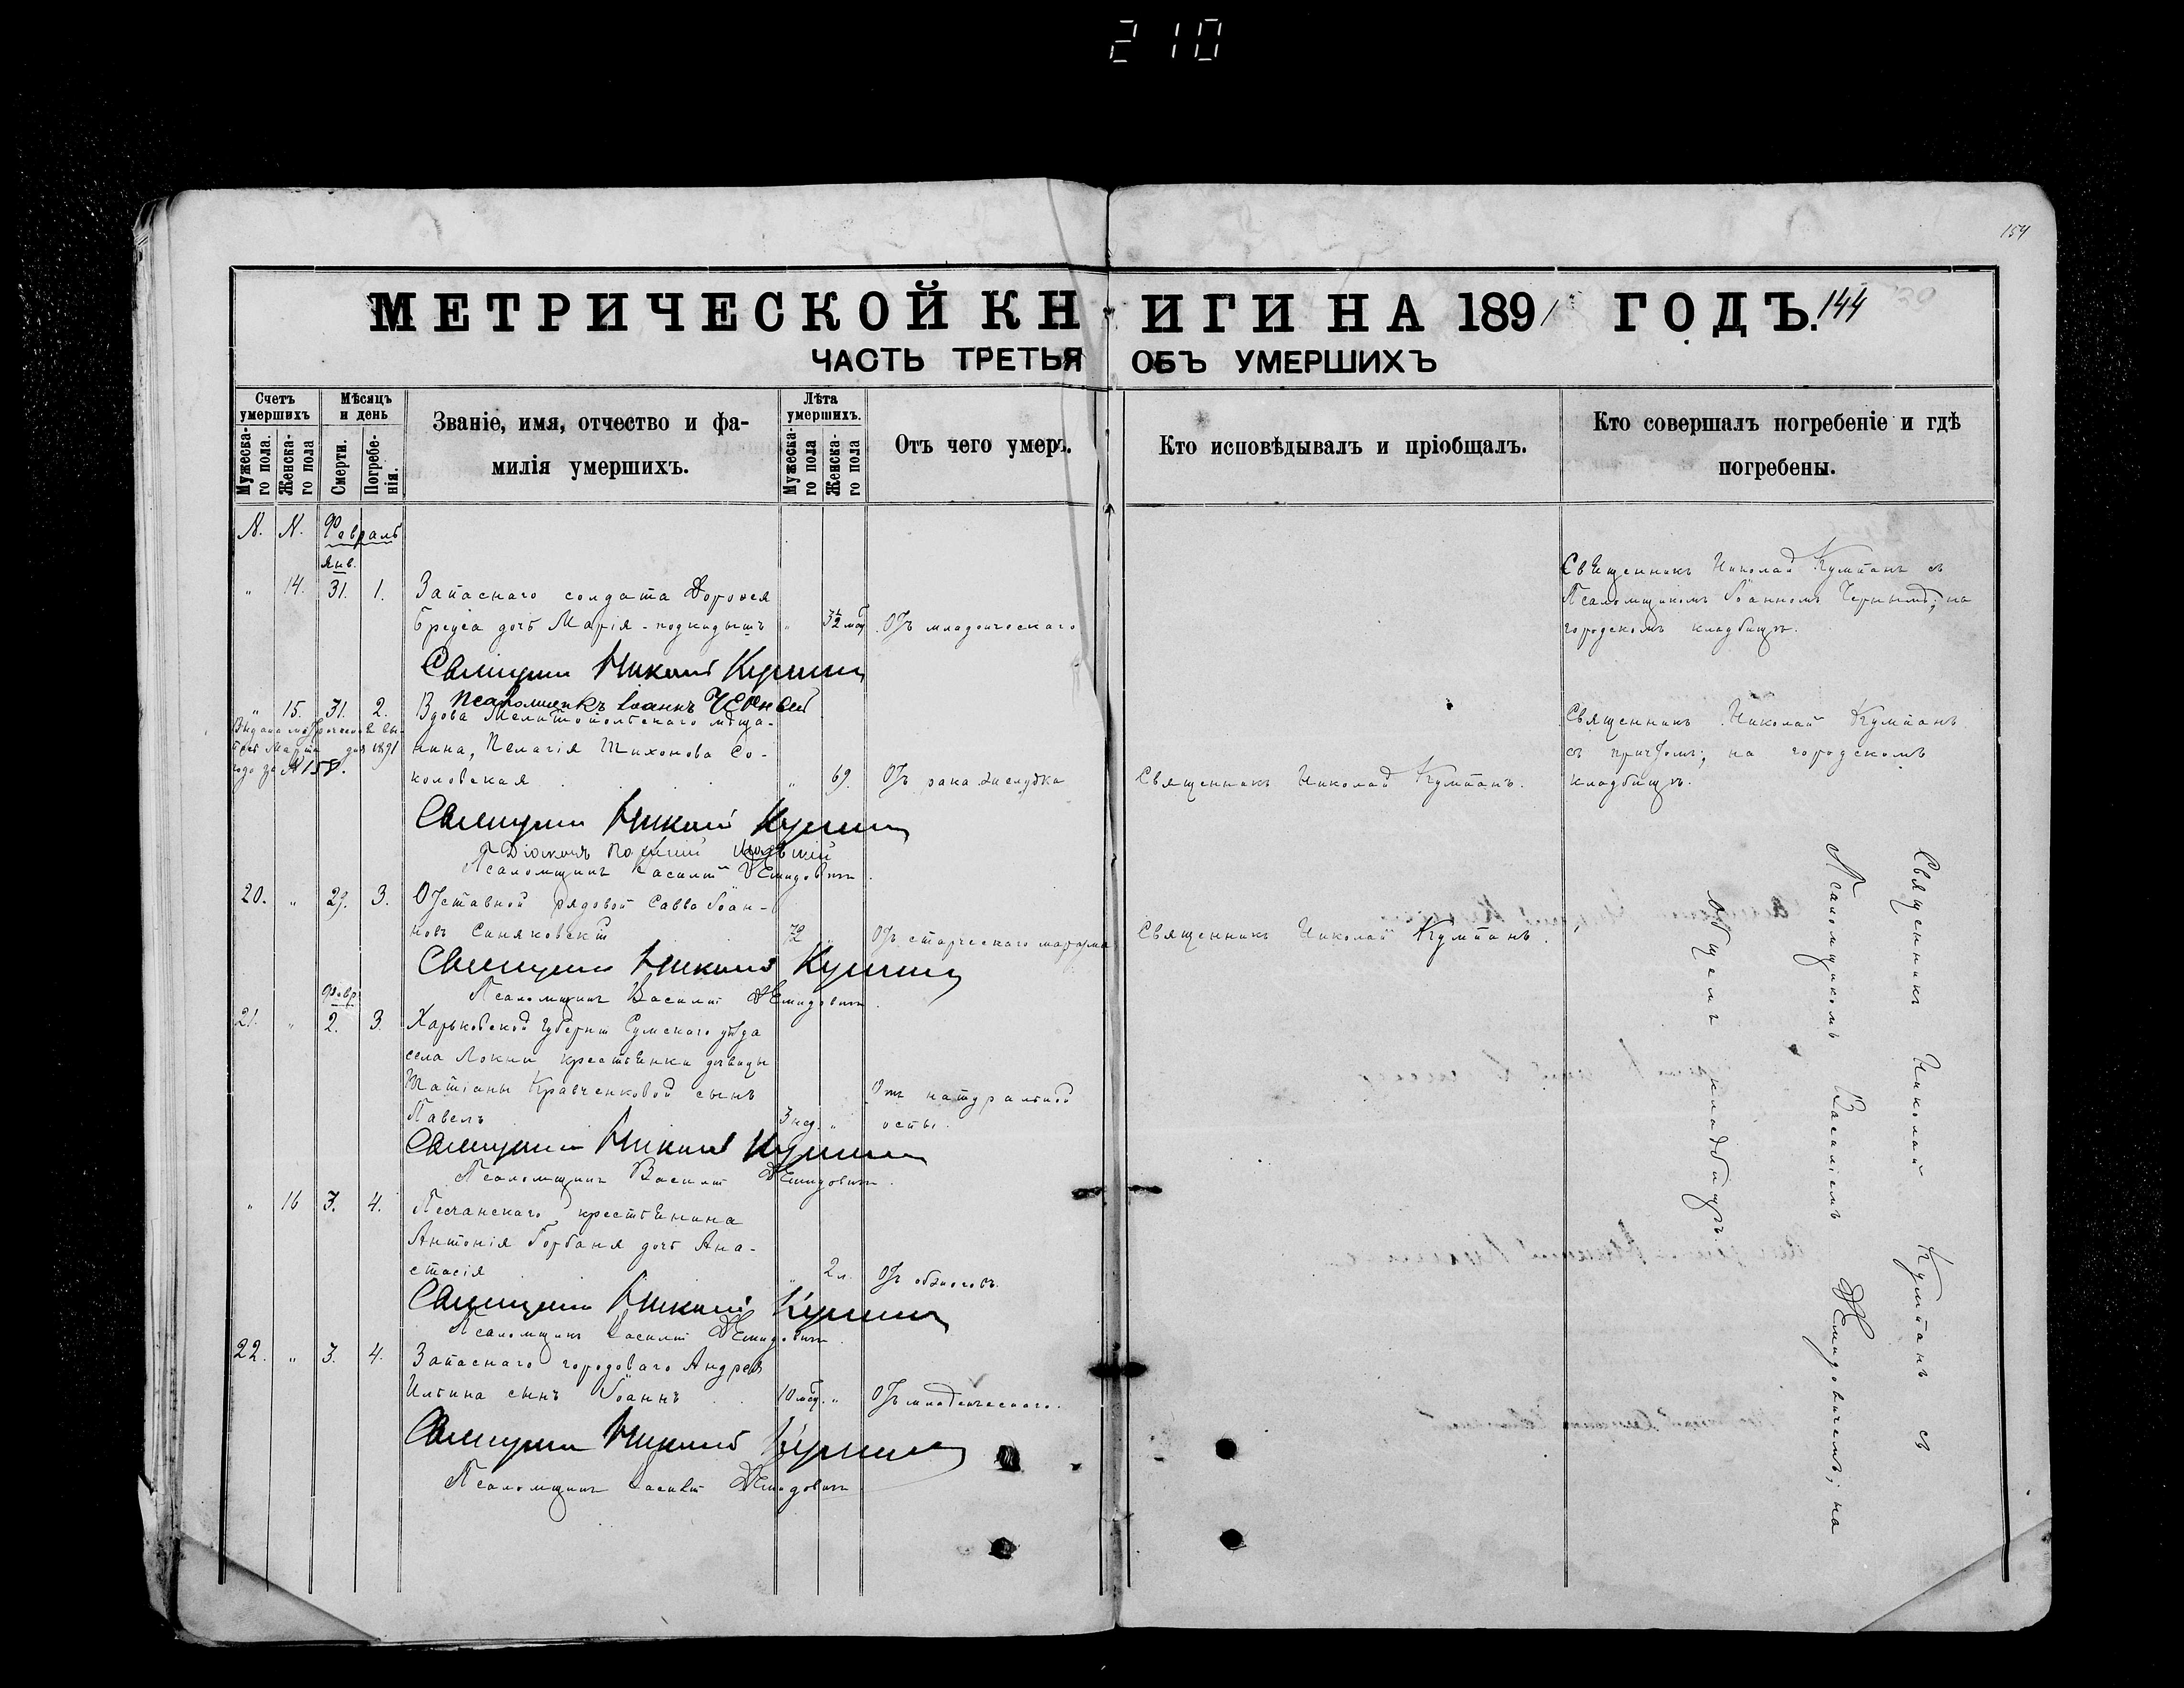 210
154
МЕТРИЧЕСКОЙ КНИГИ НА 1891 ГОДЪ. 144
ЧАСТЬ ТРЕТЬЯ ОБЪ УМЕРШИХЪ
Счетъ умершихъ
Мужеска-го пола.
Женска-го пола
Мѣсяцъ и день
Смерти.
Погребе-нія.
Званіе, имя, отчество и фа-
милія умершихъ.
Лѣта умершихъ.
Мужеска-го пола
Женска-го пола
Отъ чего умеръ.
Кто исповѣдывалъ и пріобщалъ.
Кто совершалъ погребеніе и гдѣ
погребены.
N. N. Февраль
Янв.
" 14. 31. 1. Запаснаго солдата Дорофея
дочь Марія - подкидышъ " Отъ младенческаго
Священникъ Николай Кумпанъ съ
Псаломщикомъ Іоанномъ Чернымъ; на
городскомъ кладбищѣ.
Священникъ Николай Кумпанъ
Псаломщикъ Іоаннъ Черный
" 15. 31. 2. Вдова Мелитопольскаго мѣща-
нина, Пелагія Тихонова Со-
коловская " 69. Отъ рака желудка
Марта дня 1891
года за № 158.
Священникъ Николай Кумпанъ.
Священникъ Николай Кумпанъ
съ причтомъ; на городскомъ
кладбищѣ.
Священникъ Николай Кумпанъ
Діаконъ
Псаломщикъ Василій Демидовичъ
20. " 29. 3. Отставной рядовой Савва Іоан-
новъ Синяковскій 72 Отъ старческаго маразма
Священникъ Николай Кумпанъ.
Священникъ Николай Кумпанъ
Псаломщикъ Василій Демидовичъ.
Февр.
21. " 2. 3. Харьковской губерніи Сумскаго уѣзда
села Локни крестьянки дѣвицы
Татіаны Кравченковой сынъ
Павелъ 3 нед. " Отъ натуральной
оспы.
Священникъ Николай Кумпанъ
Псаломщикъ Василій Демидовичъ.
" 16 3. 4. Песчанскаго крестьянина
Антонія Горбаня дочь Ана-
стасія " 2 л. Отъ обжоговъ.
Священникъ Николай Кумпанъ
Псаломщикъ Василій Демидовичъ.
22. " 3. 4. Запаснаго городоваго Андрея
Ильина сынъ Іоаннъ 10 мѣс. " Отъ младенческаго.
Священникъ Николай Кумпанъ
Псаломщикъ Василій Демидовичъ
Священникъ Николай Кумпанъ съ
Псаломщикомъ Василіемъ Демидовичемъ; на
общемъ кладбищѣ.